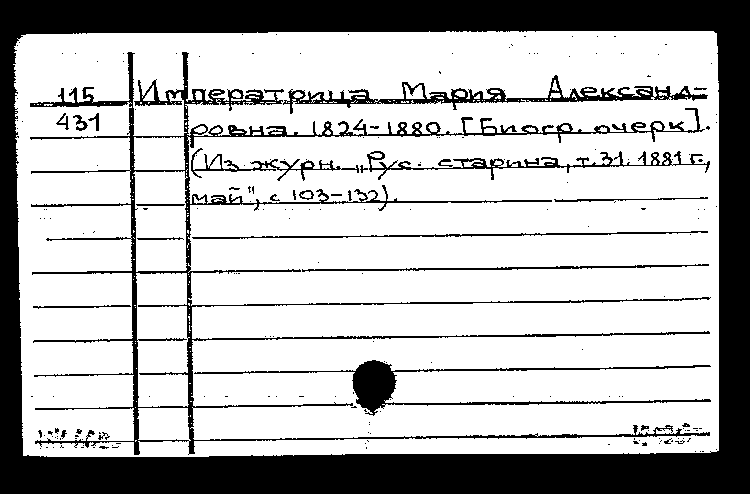 115 Императрица Мария Александ-
431 ровна. 1824-1880. [Биогр. очерк].
(Из журн. „Рус. старина, т.31. 1881 г.,
май", с 103-132).